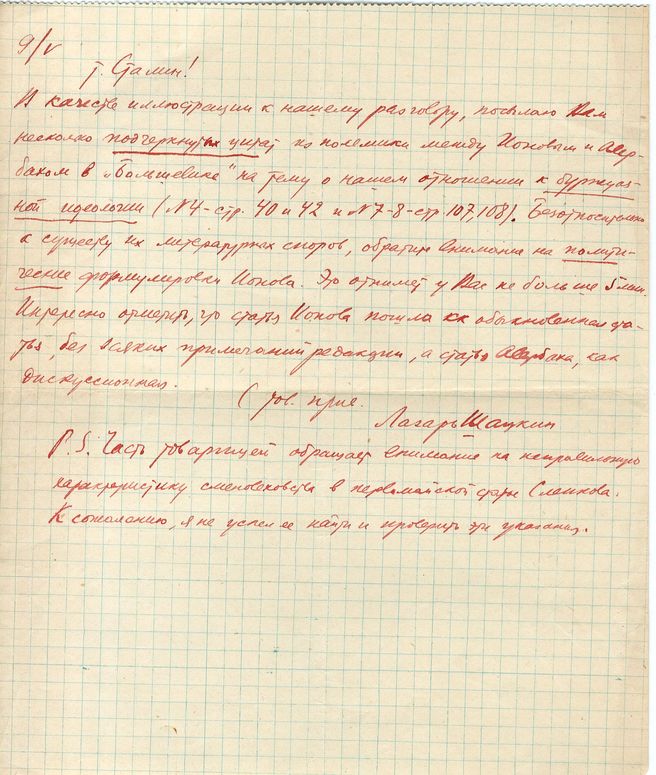 9/V
т. Сталин!
В качестве иллюстрации к нашему разговору, посылаю Вам
несколько подчеркнутых цитат из полемики между Ионовым и Авер-
бахом в „Большевике" на тему о нашем отношении к буржуаз-
ной идеологии (№4-стр. 40 и 42 и №7-8-стр. 107, 108). Безотносительно
к существу их литературных споров, обратите внимание на полити-
ческие формулировки Ионова. Это отнимет у Вас не больше 5 мин.
Интересно отметить, что статья Ионова пошла как обыкновенная ста-
тья, без всяких примечаний редакции, а статья Авербаха, как
дискуссионная.
С тов. прив.
Лазарь Шацкин
P.S. Часть товарищей обращает внимание на неправильную
характеристику сменовеховства в первомайской статье Слепкова.
К сожалению, я не успел ее найти и проверить эти указания.